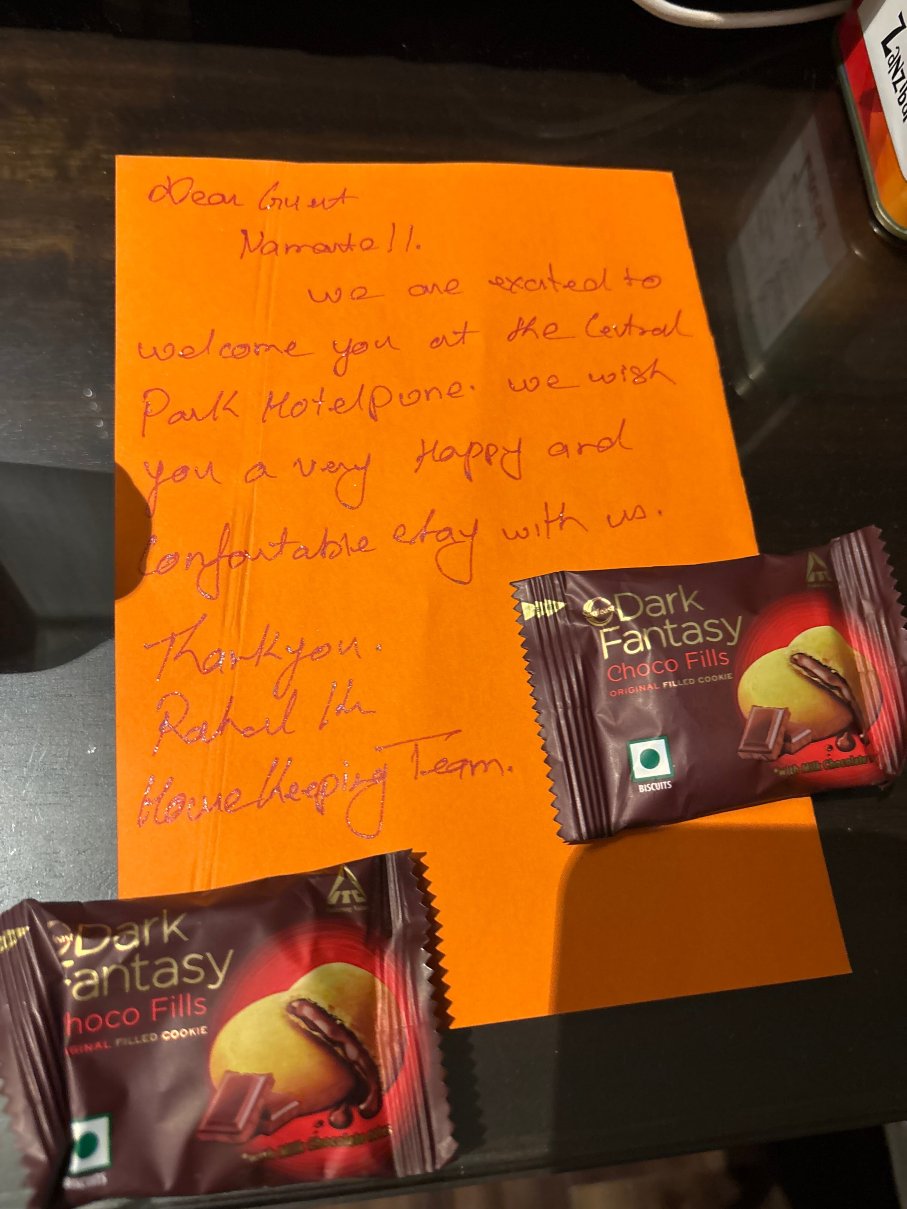 Dear Guest
Namaste!!.
we are excited to
welcome you at the Central
Park Hotel Pune. we wish
you a very Happy and
Confortable stay with us.
Thankyou.
HouseKeeping Team.
Dark
Fantasy
Choco Fills
ORIGINAL FILLED COOKIE
with Milk Chocolate
BISCUITS
ITC
Dark
Fantasy
Choco Fills
ORIGINAL FILLED COOKIE
BISCUITS
Zanzibar